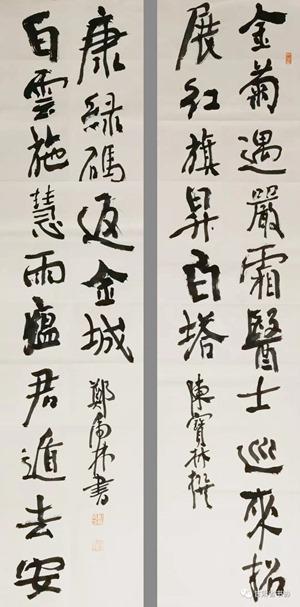 金菊遇嚴霜醫士巡來招
展紅旗昇白塔
陳寶林撰
白雲施慧雨瘟君遁去安
康綠碼返金城
鄭虎林書